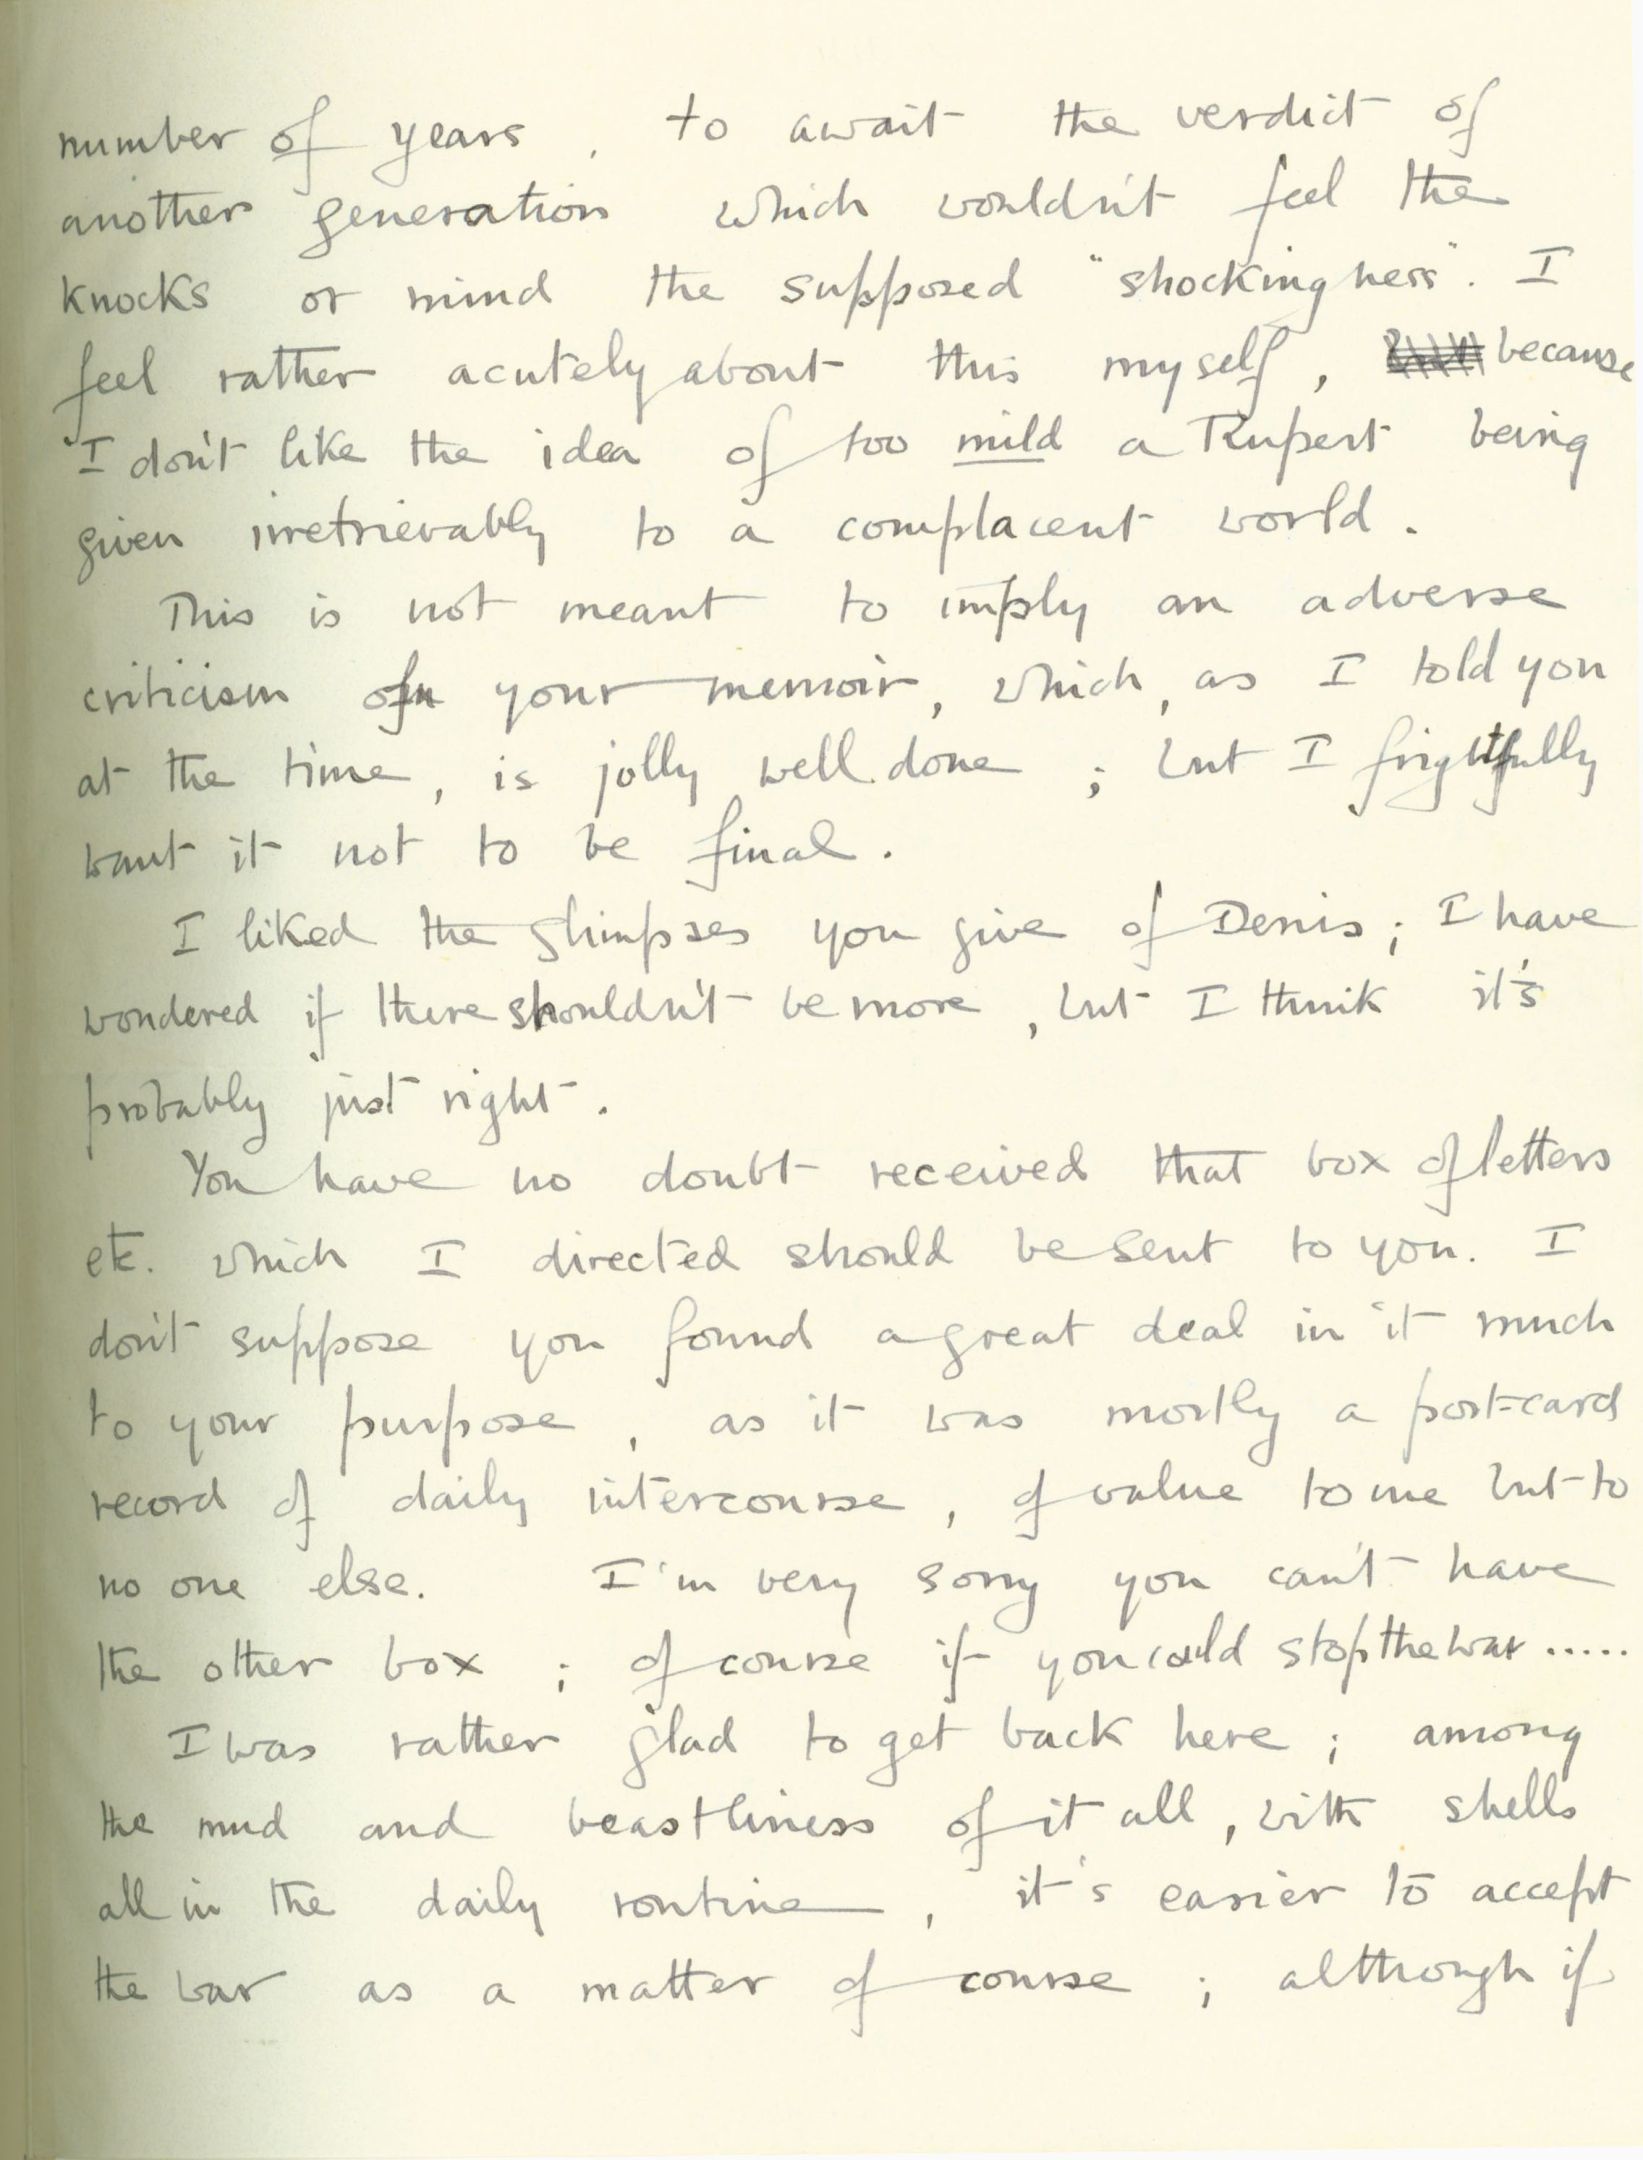 number of years, to await the verdict of
another generation which wouldn't feel the
knocks or mind the supposed "shockingness". I
feel rather acutely about this myself, because
I don't like the idea of too mild a Rupert being
given irretrievably to a complacent world.
This is not meant to imply an adverse
criticism on your memoir, which, as I told you
at the time, is jolly well done; but I frightfully
want it not to be final.
I liked the glimpses you give of Denis; I have
wondered if there shouldn't be more, but I think it's
probably just right.
You have no doubt received that box of letters
etc. which I directed should be sent to you. I
don't suppose you found a great deal in it much
to your purpose, as it was mostly a post-card
record of daily intercourse, of value to me but to
no one else. I'm very sorry you can't have
the other box; of course if you could stop the war.....
I was rather glad to get back here; among
the mud and beastliness of it all, with shells
all in the daily routine, it's easier to accept
the war as a matter of course; although if